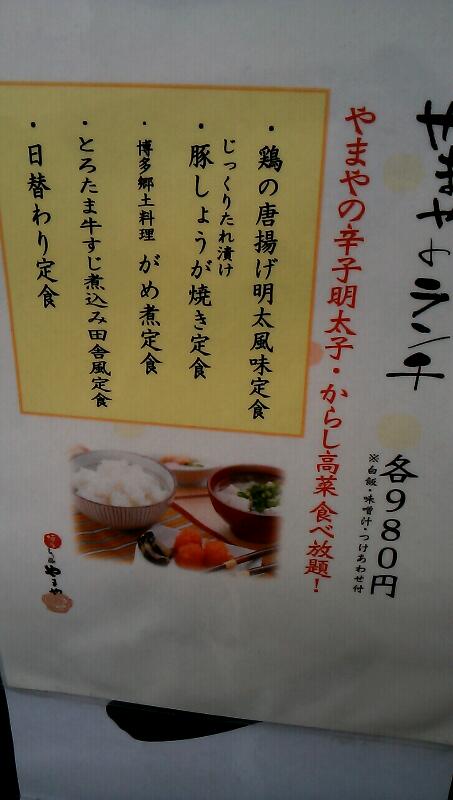 やまやのランチ
各980円
※白飯・味噌汁・つけあわせ付
やまやの辛子明太子・からし高菜食べ放題！
・鶏の唐揚げ明太風味定食
じっくりたれ漬け
・豚しょうが焼き定食
・博多郷土料理 がめ煮定食
・とろたま牛すじ煮込み田舎風定食
・日替わり定食
やまや